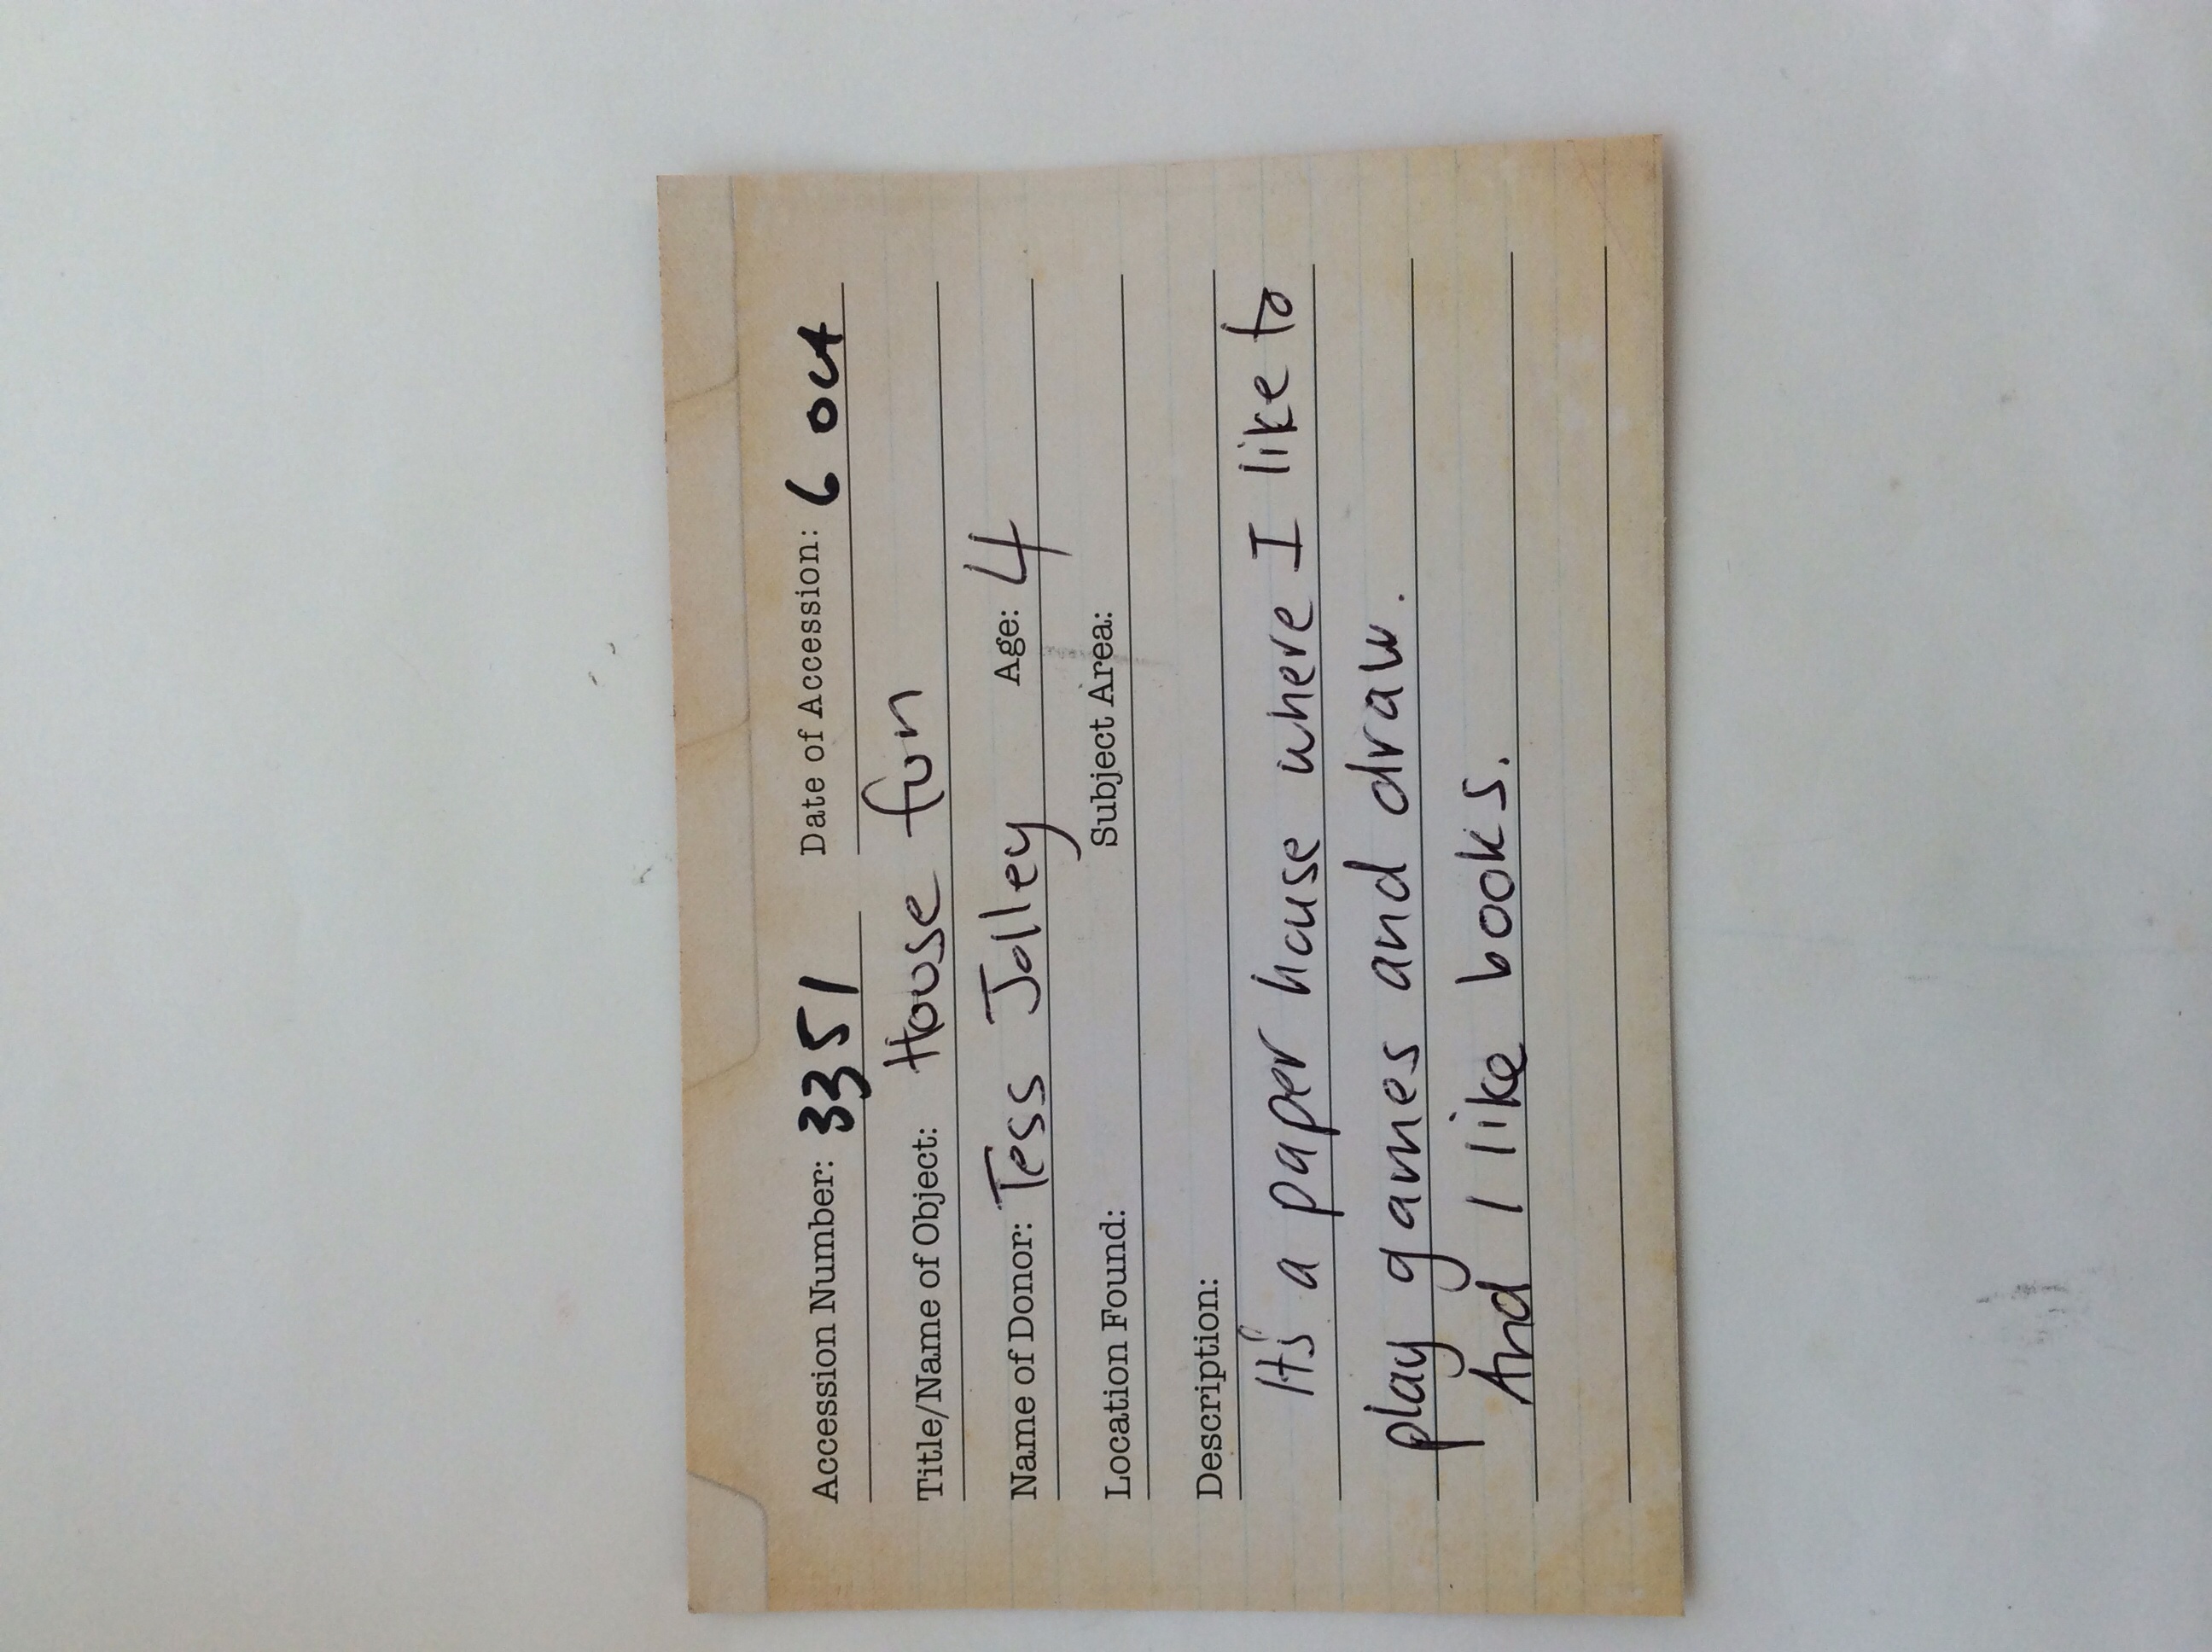 Accession Number: 3351 Date of Accession: 6 Oct
Title/Name of Object: House fun
Name of Donor: Tess Jolley Age: 4
Location Found: Subject Area:
Description:
It's a paper house where I like to
play games and draw.
And I like books.